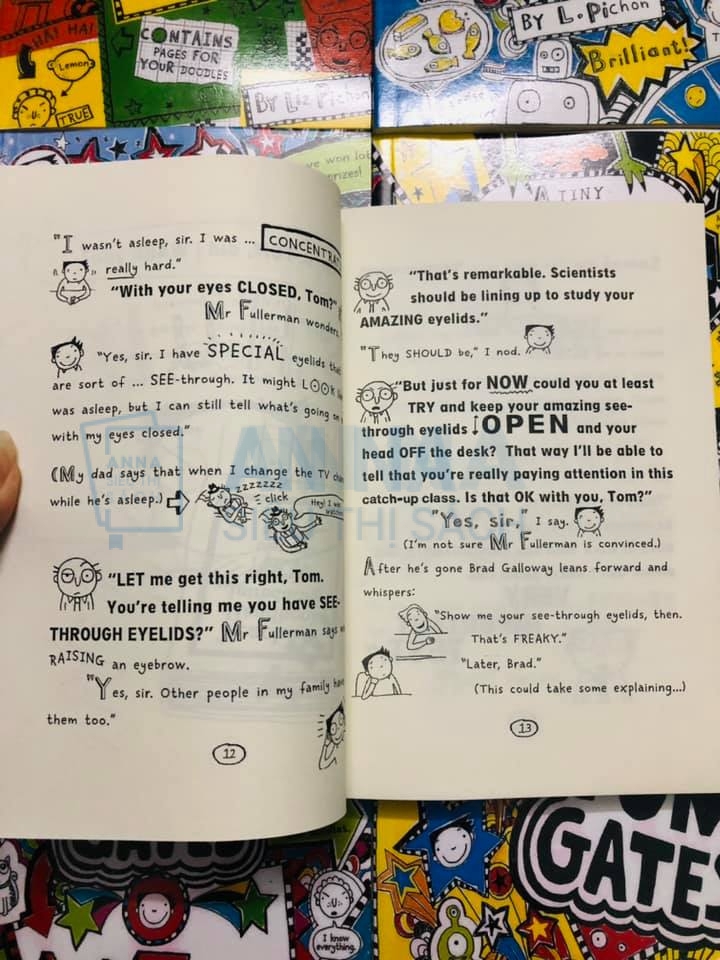 HA! HA!
Lemon
TRUE
CONTAINS
PAGES FOR
YOUR DOODLES
BY Liz Pichon
BY L. Pichon
Brilliant!
ve won lot
prizes!
A TINY
"I wasn't asleep, sir. I was ...
really hard."
"With your eyes CLOSED, Tom?"
Mr Fullerman wonders.
"Yes, sir. I have SPECIAL eyelids
are sort of ... SEE-through. It might LOOK
was asleep, but I can still tell what's going on
with my eyes closed."
(My dad says that when I change the TV
while he's asleep.)
zzzzzzz
click
Hey! I was
"LET me get this right, Tom.
You're telling me you have SEE-
THROUGH EYELIDS?" Mr Fullerman says
RAISING an eyebrow.
"Yes, sir. Other people in my family have
them too."
12
"That's remarkable. Scientists
should be lining up to study your
AMAZING eyelids."
"They SHOULD be," I nod.
"But just for NOW could you at least
TRY and keep your amazing see-
through eyelids OPEN and your
head OFF the desk? That way I'll be able to
tell that you're really paying attention in this
catch-up class. Is that OK with you, Tom?"
"Yes, sir," I say.
(I'm not sure Mr Fullerman is convinced.)
After he's gone Brad Galloway leans forward and
whispers:
"Show me your see-through eyelids, then.
That's FREAKY."
"Later, Brad."
(This could take some explaining...)
13
ANNA
SIÊU THỊ SÁCH
GATES
I know
everything.